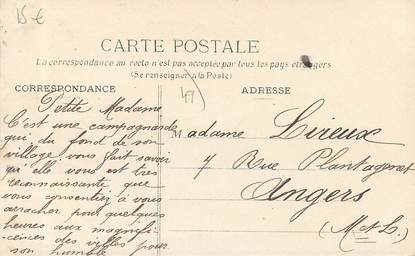 15 €
CARTE POSTALE
La correspondance au recto n'est pas acceptée par tous les pays étrangers
(Se renseigner à la Poste)
CORRESPONDANCE
Petite Madame
C'est une campagnarde
qui, du fond de son
village, vous fait savoir
qu'elle vous est très
reconnaissante que
vous consentiez à vous
arracher pour quelques
heures aux magnifi-
cences des villes pour
son humble
49)
ADRESSE
Madame Lireux
7 Rue Plantagenet
Angers
(M et L.)